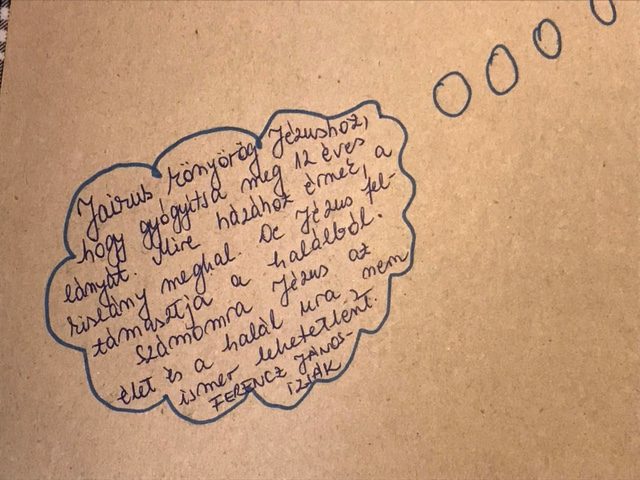 Jairus könyörög Jézushoz,
hogy gyógyítsa meg 12 éves
lányát. Mire házához érnek, a
kislány meghal. De Jézus fel-
támasztja a halálból.
Számomra Jézus az
élet és a halál ura, nem
ismer lehetetlent.
FERENCZ JÁNOS-
IZSÁK